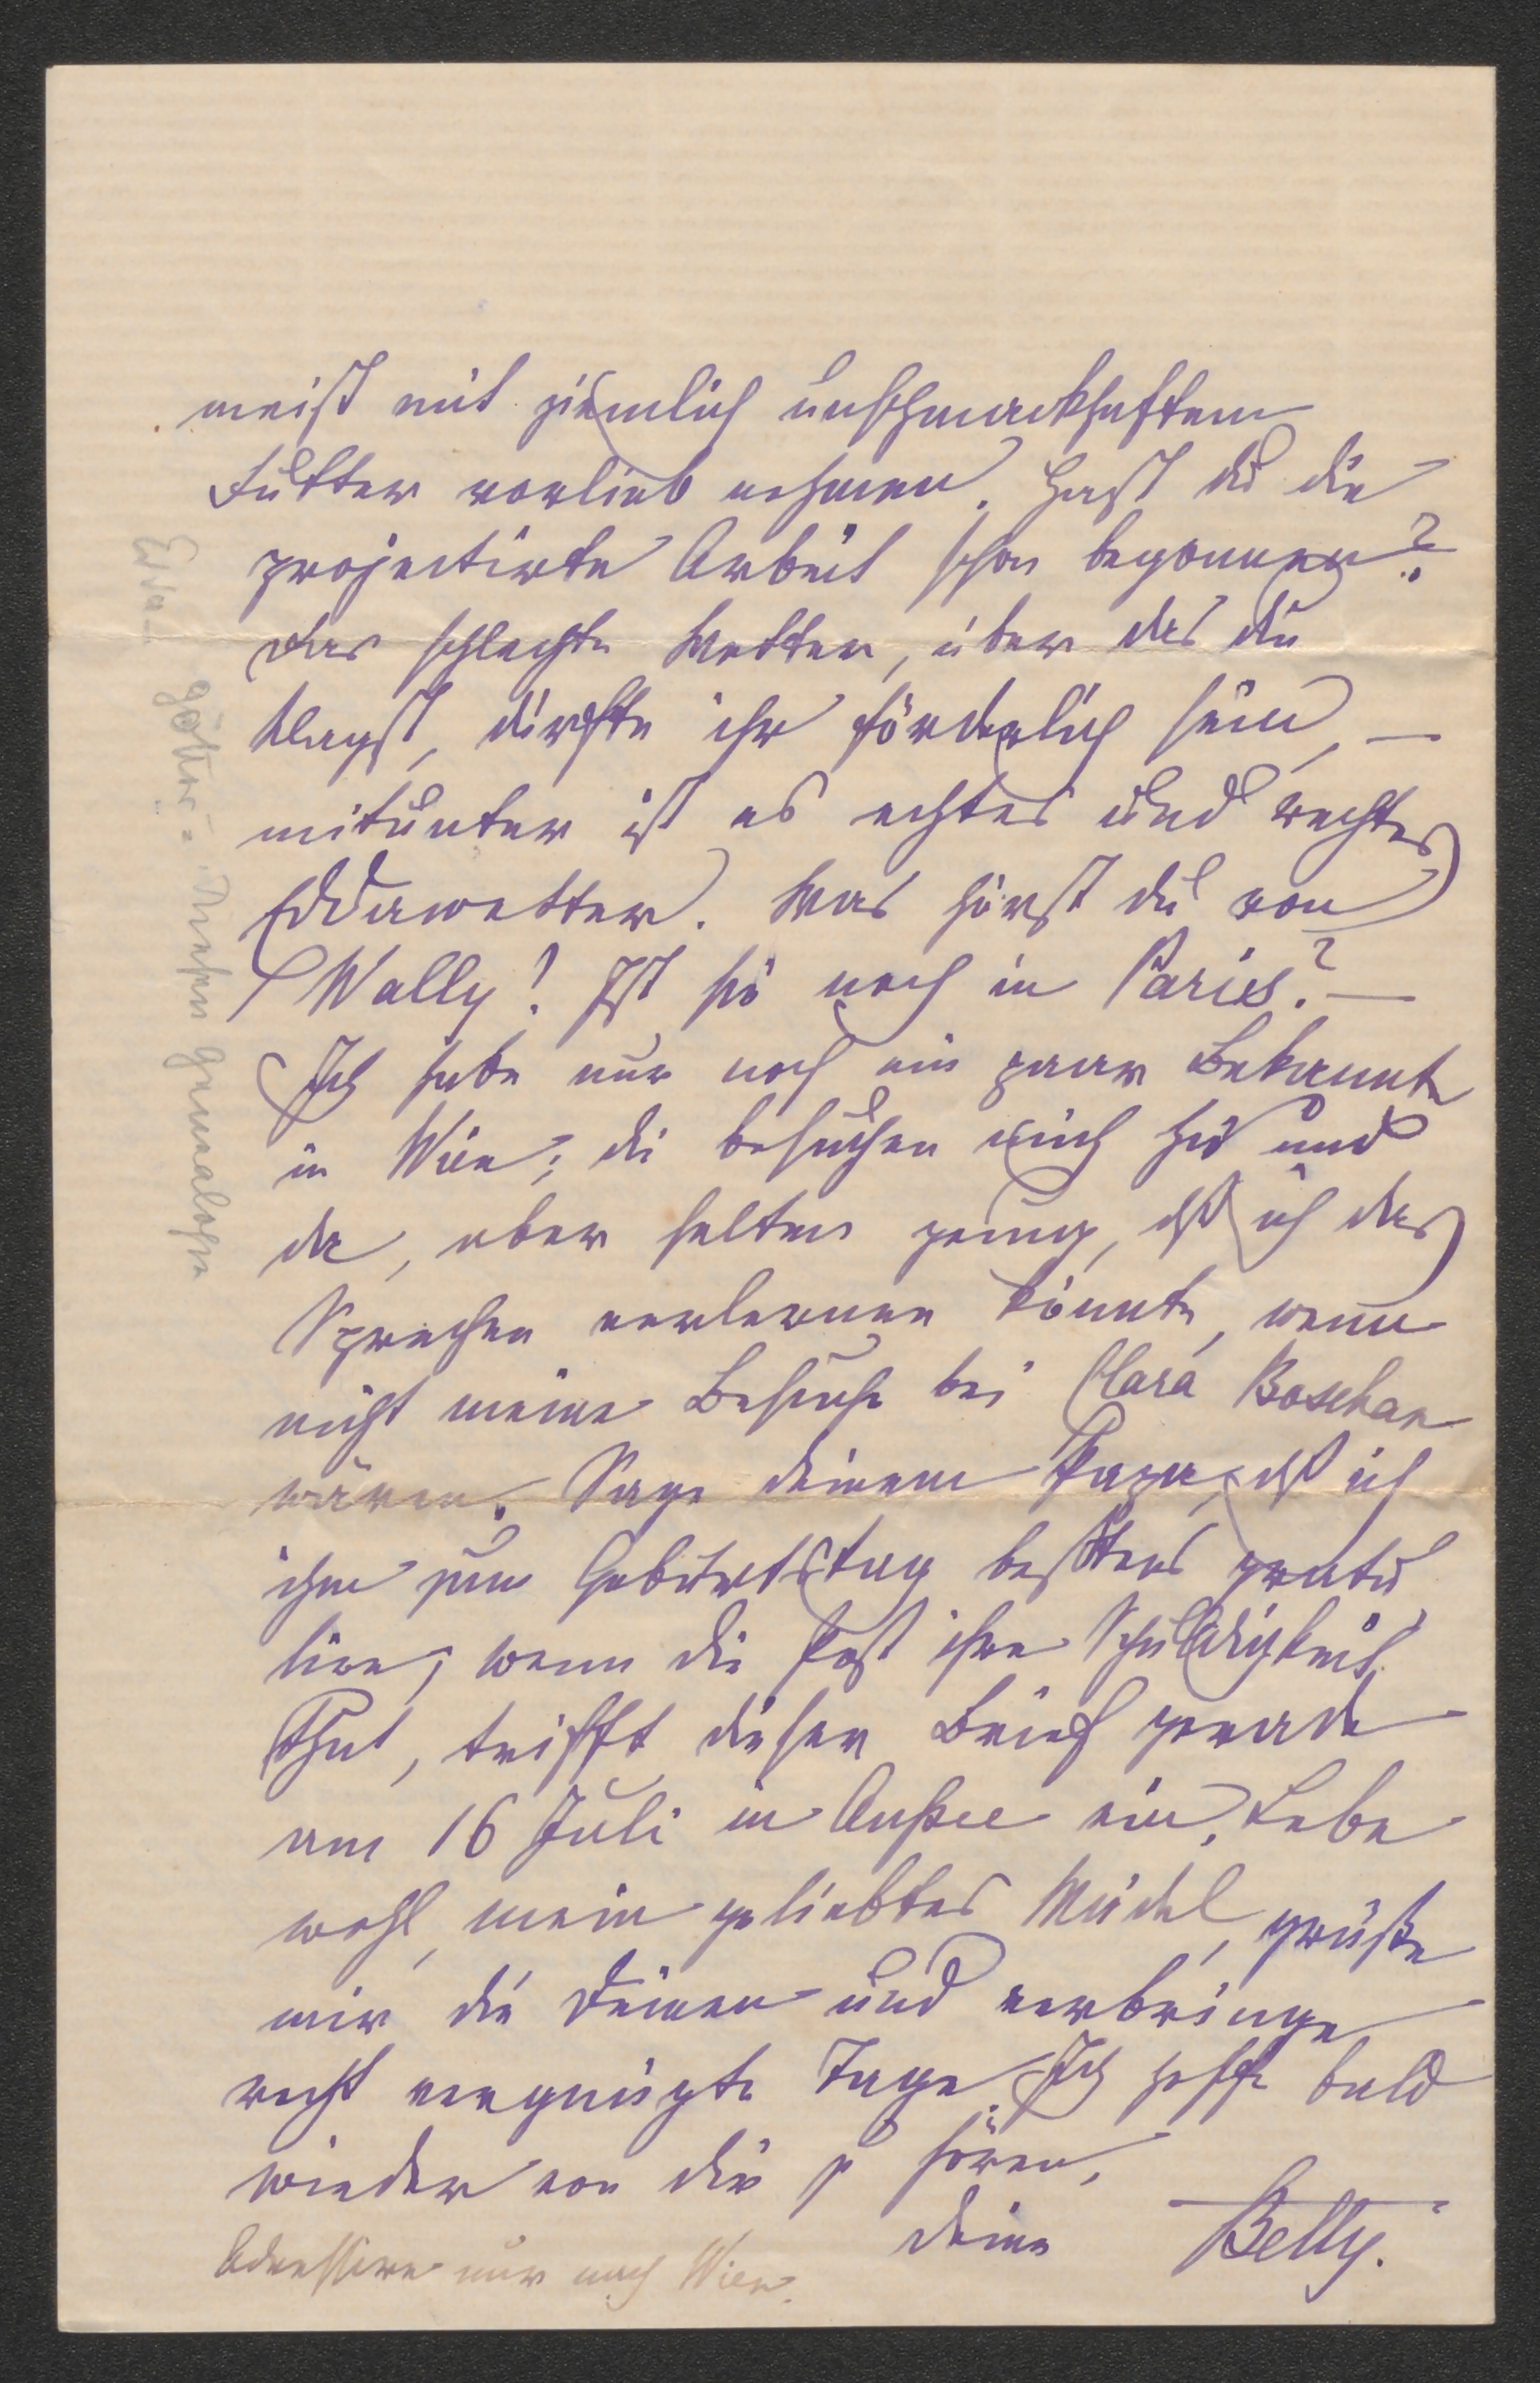 meist mit ziemlich unschmackhaftem
Futter vorlieb nehmen. Hast du die
projectirte Arbeit schon begonnen?
Das schlechte Wetter, über das du
klagst, dürfte ihr förderlich sein, —
mitunter ist es echtes und rechtes
Eddawetter. Was hörst du von
Wally! Ist sie noch in Paris? —
Ich habe nur noch ein paar Bekannte
in Wien; die besuchen mich hie und
da, aber selten genug, dß ich das
Sprechen verlernen könnte, wenn
nicht meine Besuche bei Clara Boschan
wären. Sage deinem Papa, dß ich
ihm zum Geburtstag bestens gratu
lire; wenn die Post ihre Schuldigkeit
thut, trifft dieser Brief gerade
am 16 Juli in Aussee ein. Lebe
wohl, mein geliebtes Mädel, grüße
mir die Deinen und verbringe
recht vergnügte Tage. Ich hoffe bald
wieder von dir zu hören,
deine Betty.
Adressire nur nach Wien.
Götter